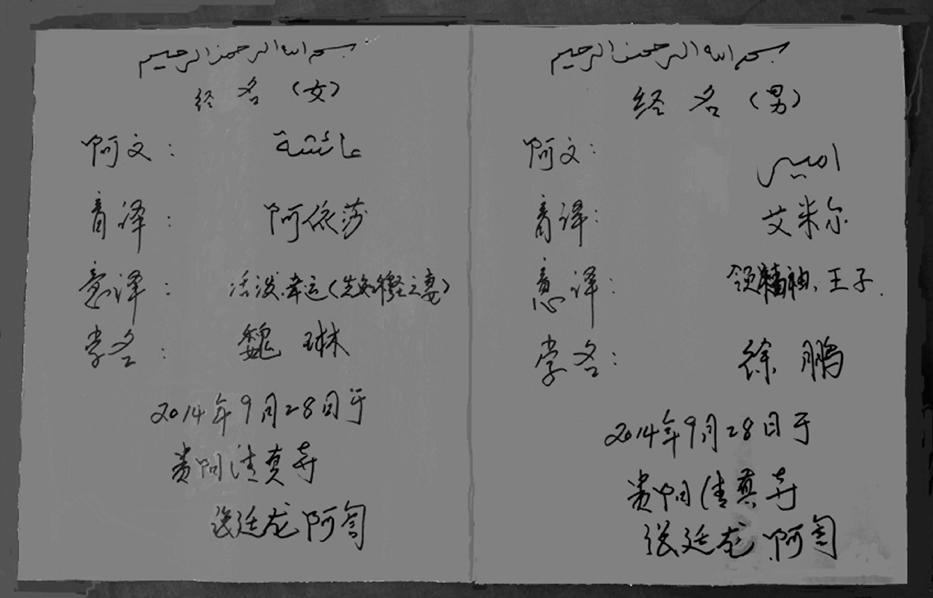 بسم الله الرحمن الرحيم
经名（女）
阿文： عائشة
音译： 阿依莎
意译： 活泼.幸运(先知穆圣之妻)
学名： 魏琳
2014年9月28日于
贵阳清真寺
张廷龙阿訇
بسم الله الرحمن الرحيم
经名（男）
阿文：
音译： 艾米尔
意译： 领袖、王子.
学名： 徐鹏
2014年9月28日于
贵阳清真寺
张廷龙.阿訇